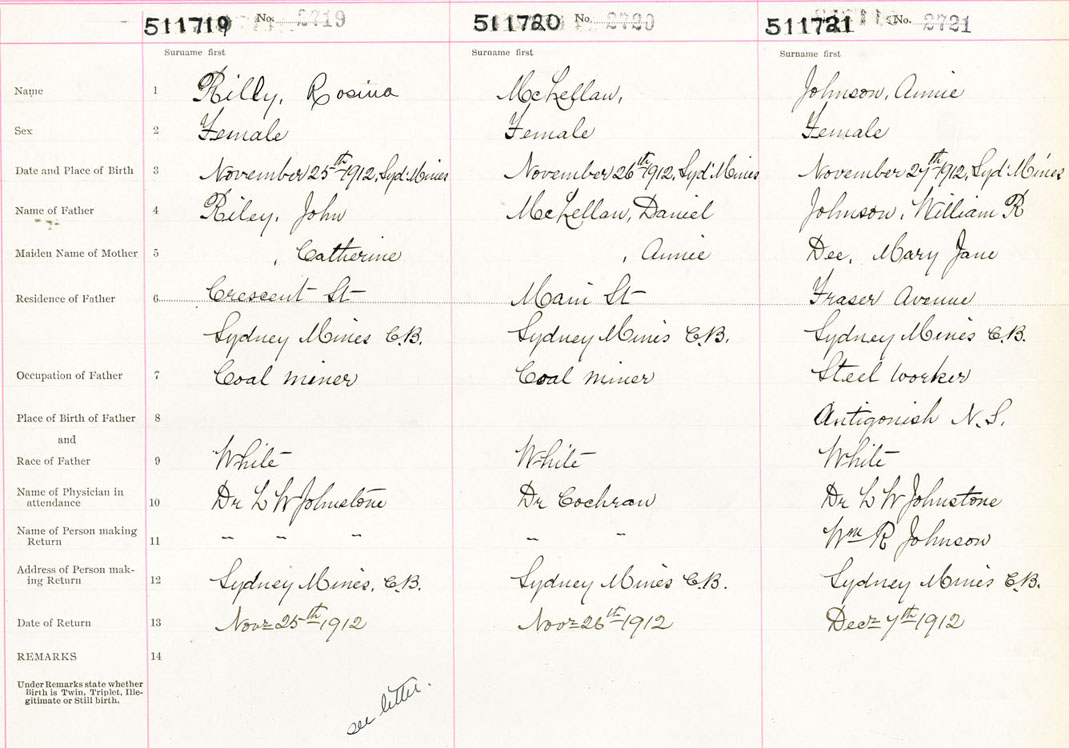 511719 No. 2719 511720 No. 2720 511721 No. 2721
Surname first Surname first Surname first
Name 1 Rilly, Rosina McLellan, Johnson, Annie
Sex 2 Female Female Female
Date and Place of Birth 3 November 25th 1912, Syd. Mines November 26th 1912, Syd. Mines November 27th 1912, Syd. Mines
Name of Father 4 Riley, John McLellan, Daniel Johnson, William R
Maiden Name of Mother 5 , Catherine , Annie Dee, Mary Jane
Residence of Father 6 Crescent St Main St Fraser Avenue
Sydney Mines C.B. Sydney Mines C.B. Sydney Mines C.B.
Occupation of Father 7 Coal miner Coal miner Steel worker
Place of Birth of Father 8 Antigonish N.S.
and
Race of Father 9 White White White
Name of Physician in
attendance 10 Dr L W Johnstone Dr Cochran Dr L W Johnstone
Name of Person making
Return 11 " " " " " Wm R Johnson
Address of Person mak-
ing Return 12 Sydney Mines, C.B. Sydney Mines C.B. Sydney Mines C.B.
Date of Return 13 Nov 25th 1912 Nov 26th 1912 Dec 7th 1912
REMARKS 14
Under Remarks state whether
Birth is Twin, Triplet, Ille-
gitimate or Still birth.
see letter.